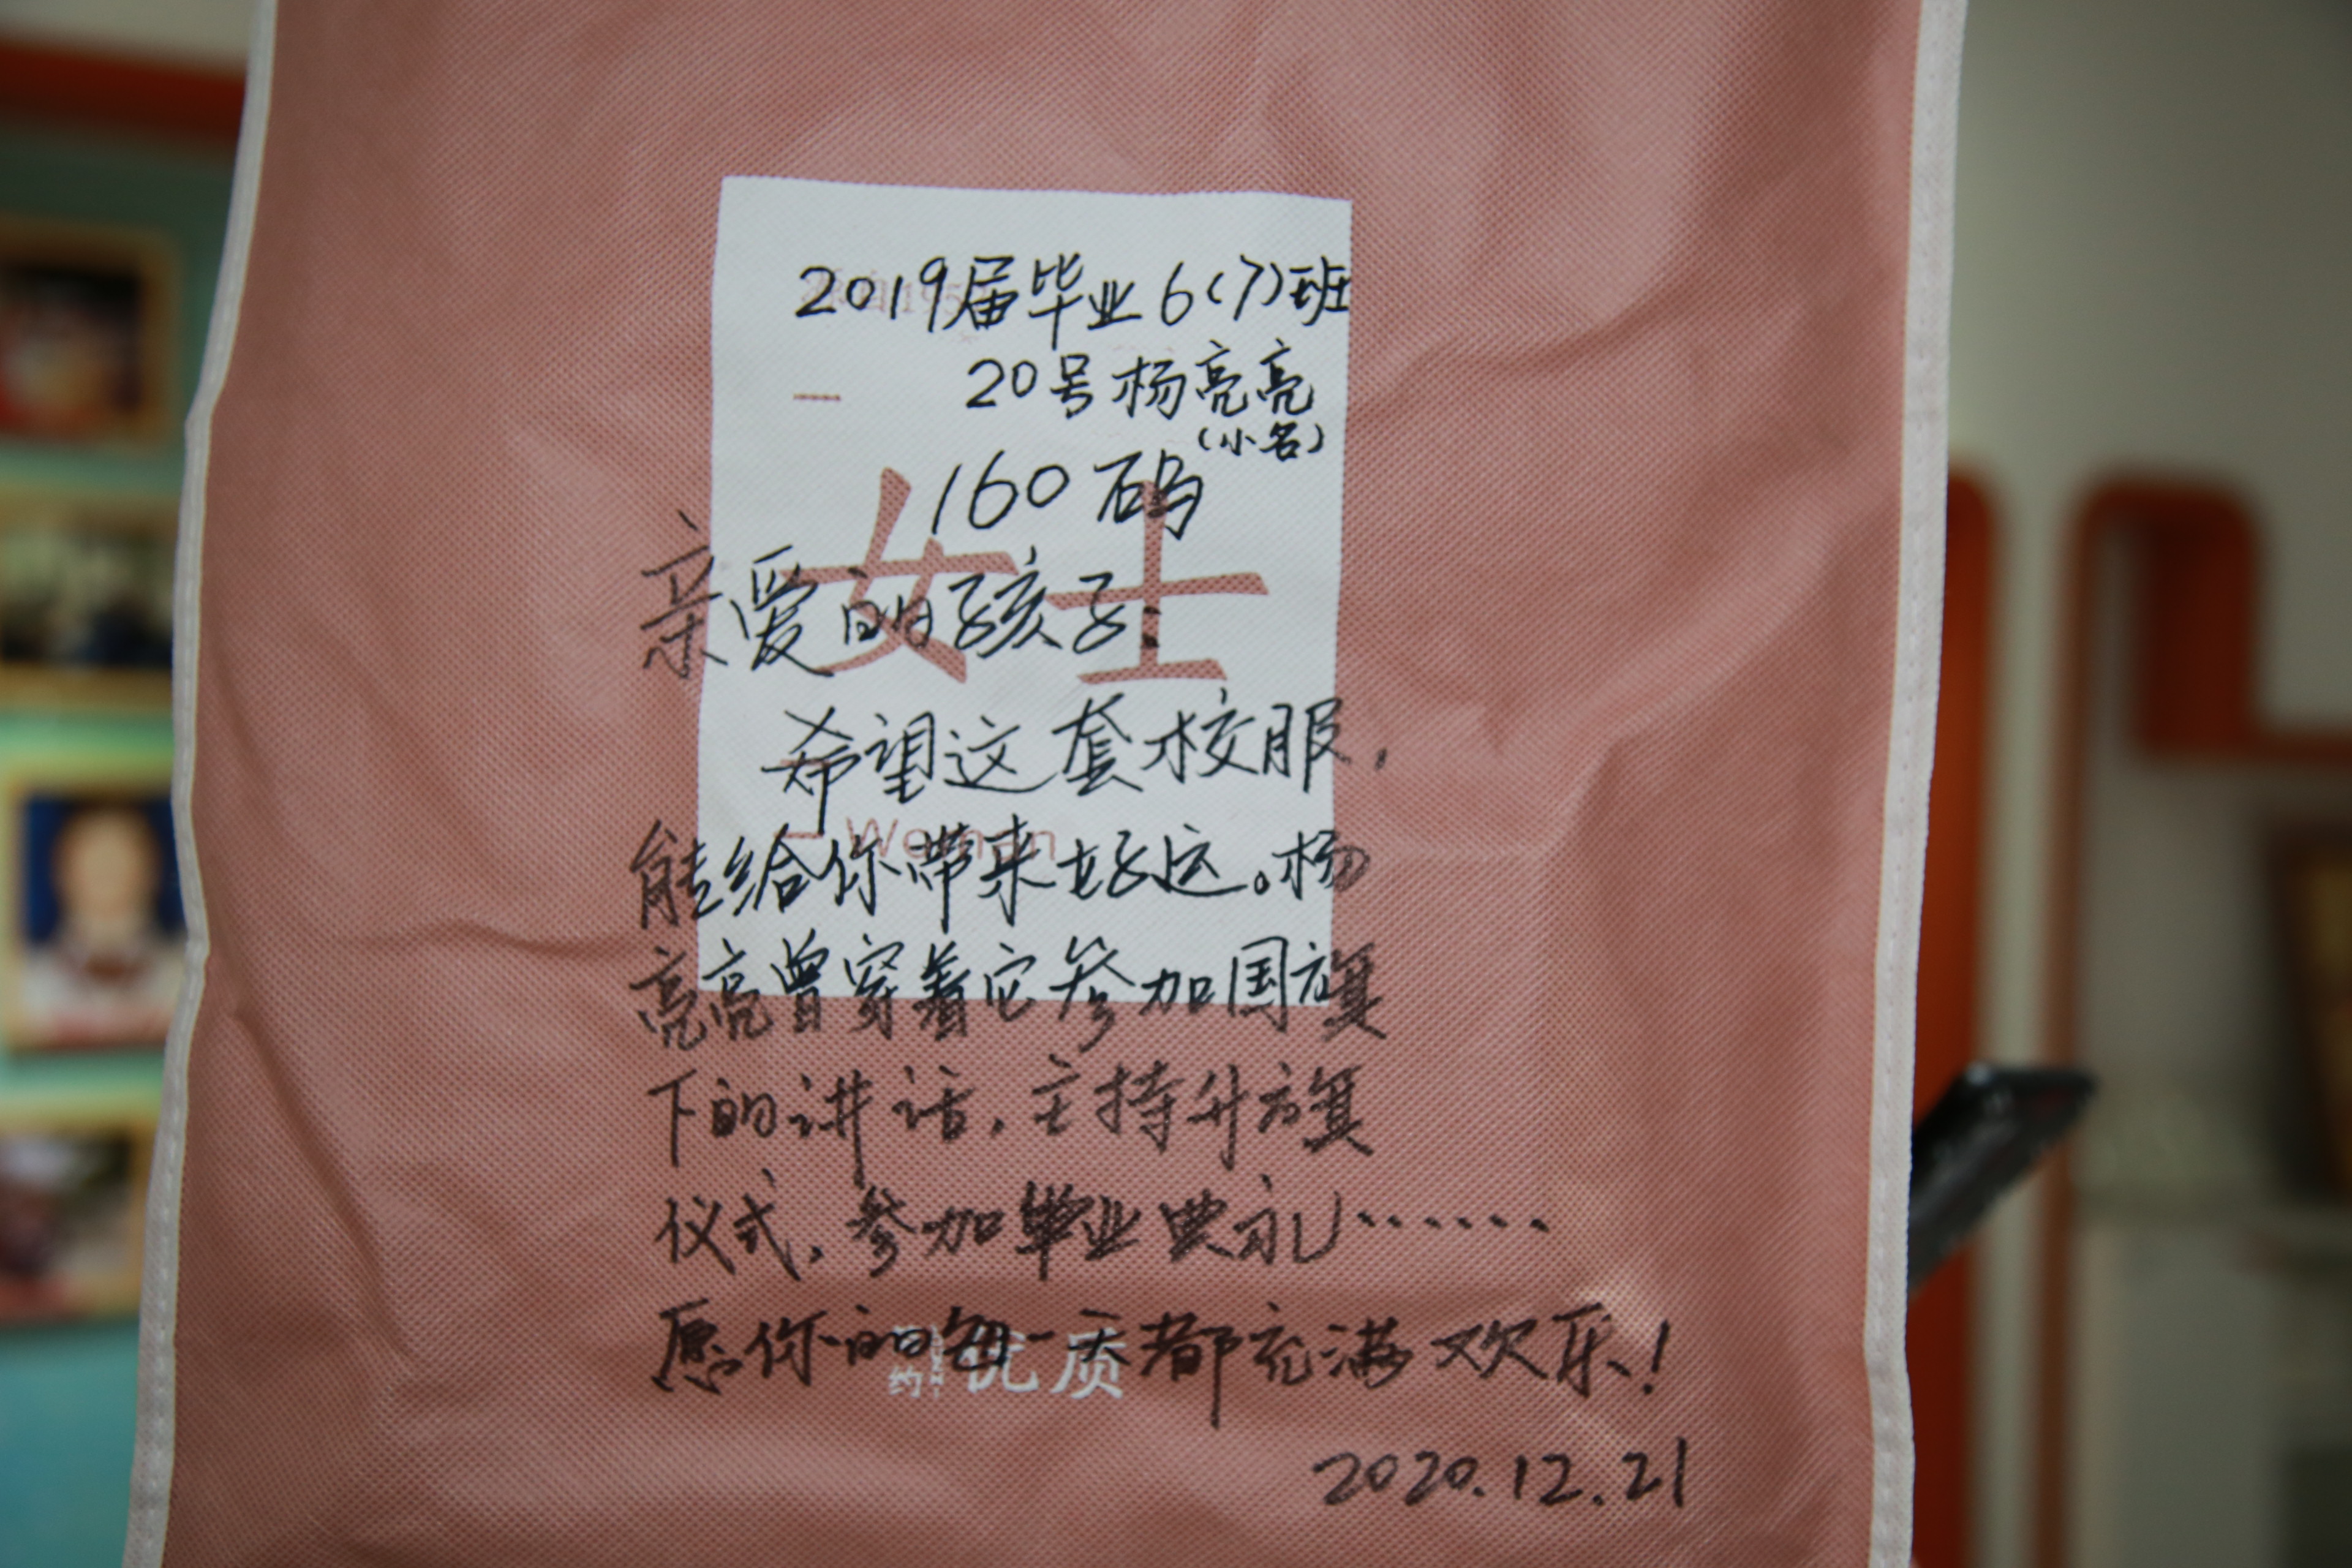 2019届毕业6(7)班
20号杨亮亮
(小名)
160码
女士
亲爱的孩子:
希望这套校服,
Woman
能给你带来好运。杨
亮亮曾穿着它参加国旗
下的讲话,主持升旗
仪式,参加毕业典礼……
愿你的每一天都充满欢乐!
约 优质
2020.12.21